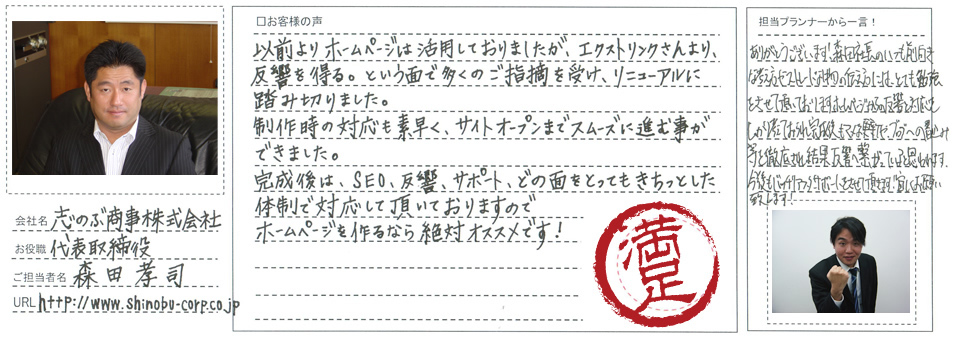 会社名 志のぶ商事株式会社
お役職 代表取締役
ご担当者名 森田 孝司
URL http://www.shinobu-corp.co.jp
□お客様の声
以前よりホームページは活用しておりましたが、エクストリンクさんより、
反響を得る。という面で多くのご指摘を受け、リニューアルに
踏み切りました。
制作時の対応も素早く、サイトオープンまでスムーズに進む事が
できました。
完成後は、SEO、反響、サポート、どの面をとってもきちっとした
体制で対応して頂いておりますので
ホームページを作るなら絶対オススメです!
満足
担当プランナーから一言!
ありがとうございます!森田社長のいつも前向き
な
とさせて頂いております。
等を徹底され結果反響へ繋がっていると思われます。
今後もバッチリサポートをさせて頂きます!宜しくお願い
致します!